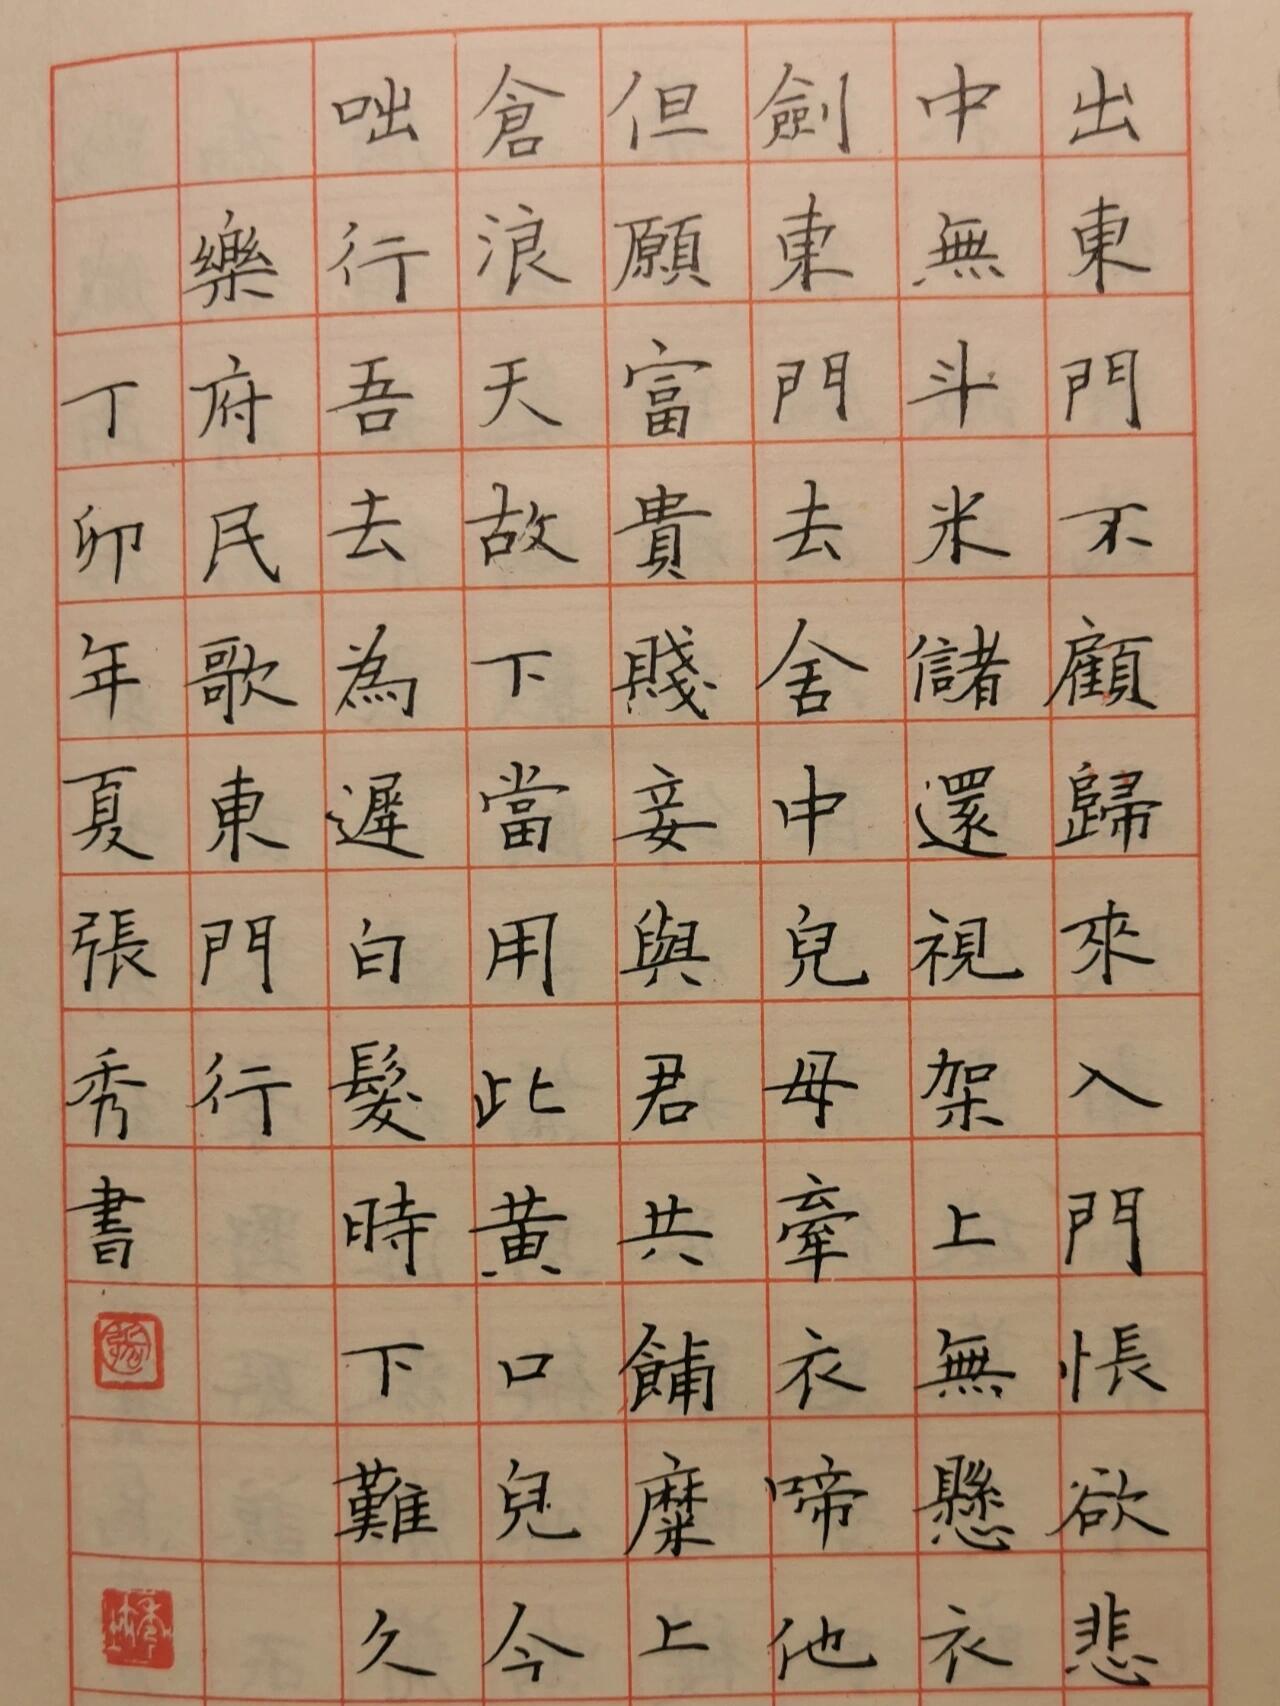 出東門不顧歸來入門悵欲悲
中無斗米儲還視架上無懸衣
劍東門去舍中兒母牽衣啼他
但願富貴賤妾與君共餔糜上
倉浪天故下當用此黃口兒今
咄行吾去為遲白髮時下難久
樂府民歌東門行
丁卯年夏張秀書